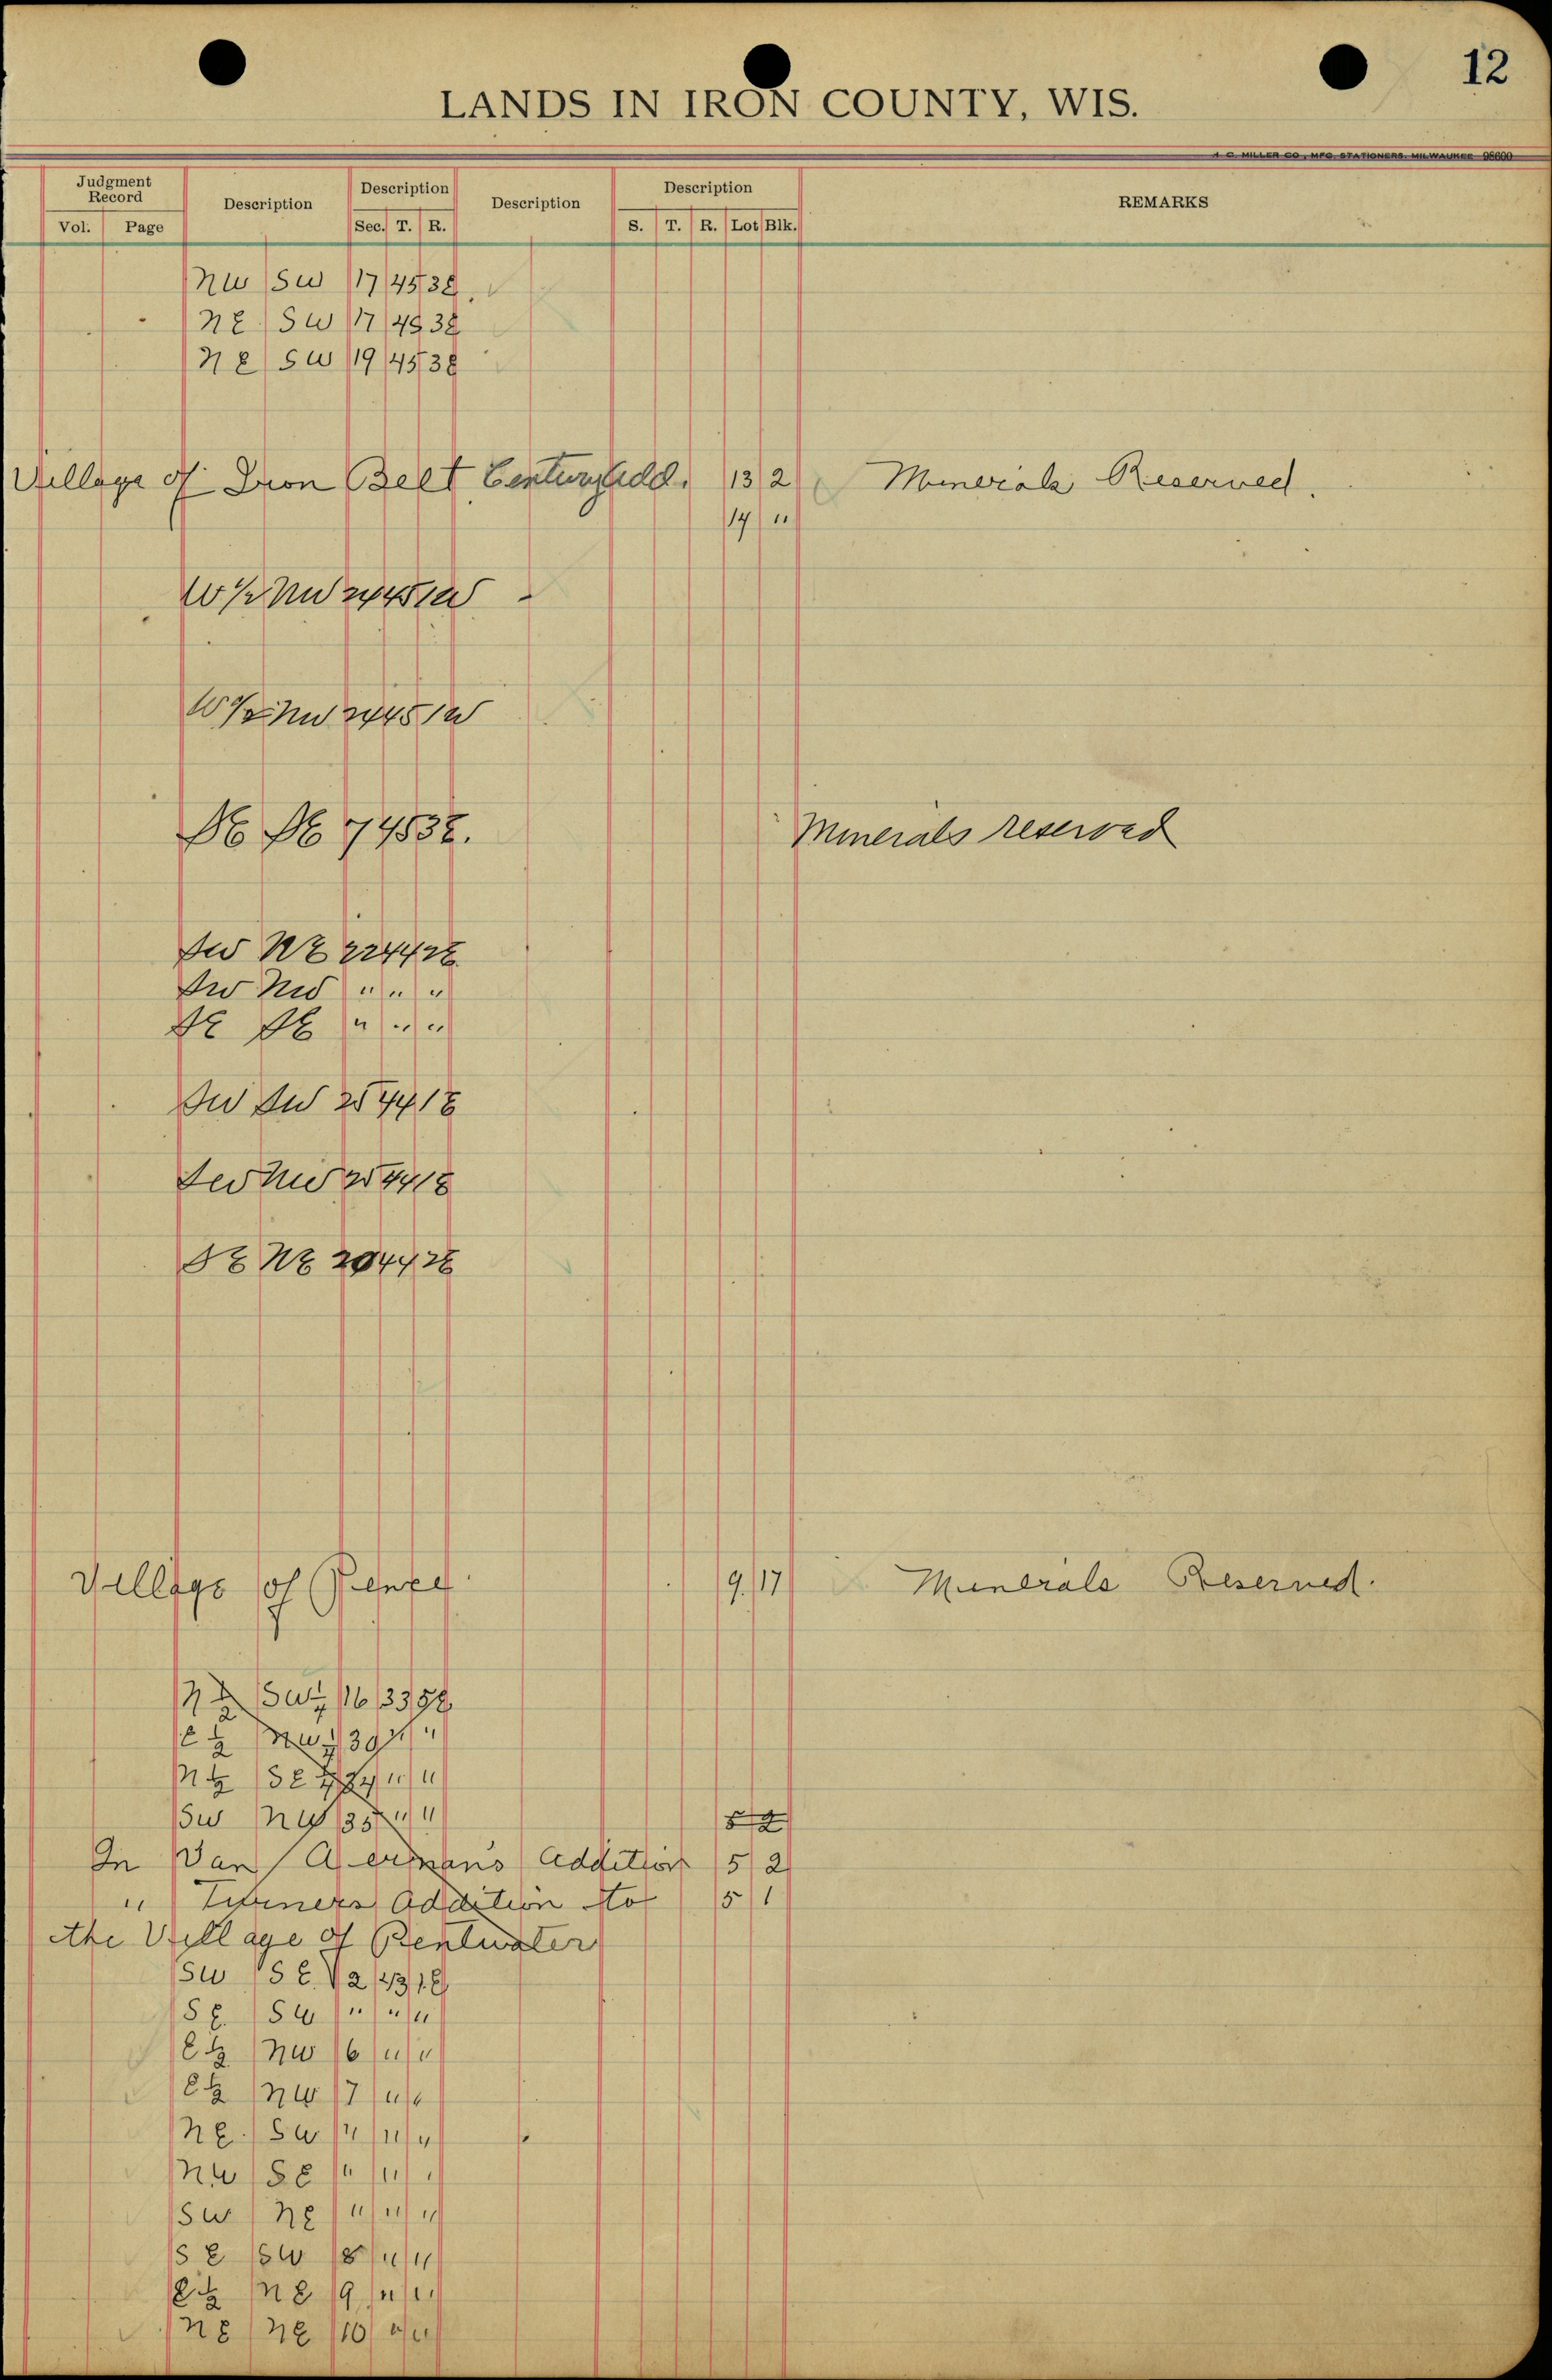 12
LANDS IN IRON COUNTY, WIS.
J. C. MILLER CO., MFG. STATIONERS, MILWAUKEE 98600
Judgment Record Description Description Description Description REMARKS
Vol. Page Sec. T. R. S. T. R. Lot Blk.
NW SW 17 45 3E
NE SW 17 45 3E
NE SW 19 45 3E
Village of Iron Belt Century Add. 13 2 Minerals Reserved.
14 "
W 1/2 NW 24 45 1W
W 1/2 NW 24 45 1W
SE SE 7 45 3E. Minerals reserved
SW NE 22 44 2E
SW NW " " "
SE SE " " "
SW SW 25 44 1E
SW NW 25 44 1E
SE NE 20 44 2E
Village of Pence 9 17 Minerals Reserved.
N 1/2 SW 1/4 16 33 5E
E 1/2 NW 1/4 30 " "
N 1/2 SE 1/4 34 " "
SW NW 35 " " 5 2
In Van Aermans Addition 5 2
" Turners Addition to 5 1
the Village of Pentwater
SW SE 2 43 1E
SE SW " " "
E 1/2 NW 6 " "
E 1/2 NW 7 " "
NE SW " " "
NW SE " " "
SW NE " " "
SE SW 8 " "
E 1/2 NE 9 " "
NE NE 10 " "